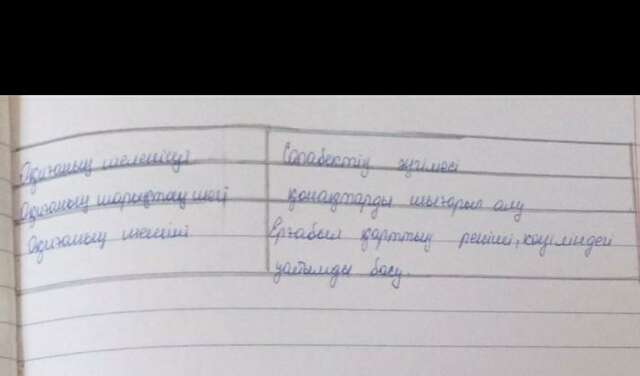 Оқиғаның шиеленісуі
Сарабектің әңгімесі
Оқиғаның шарықтау шегі
қонақтарды шығарып алу
Оқиғаның шешімі
қарттың реніші, көңіліндегі
уайымды басу.